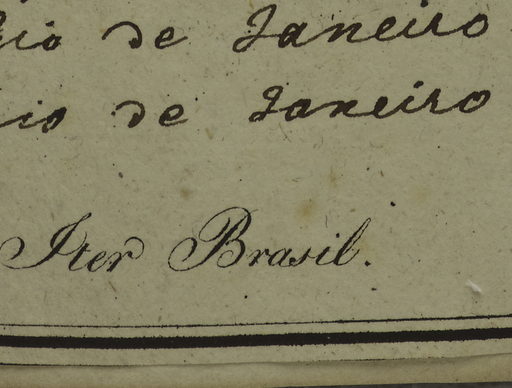 Rio de Janeiro
Rio de Janeiro
Iter Brasil.